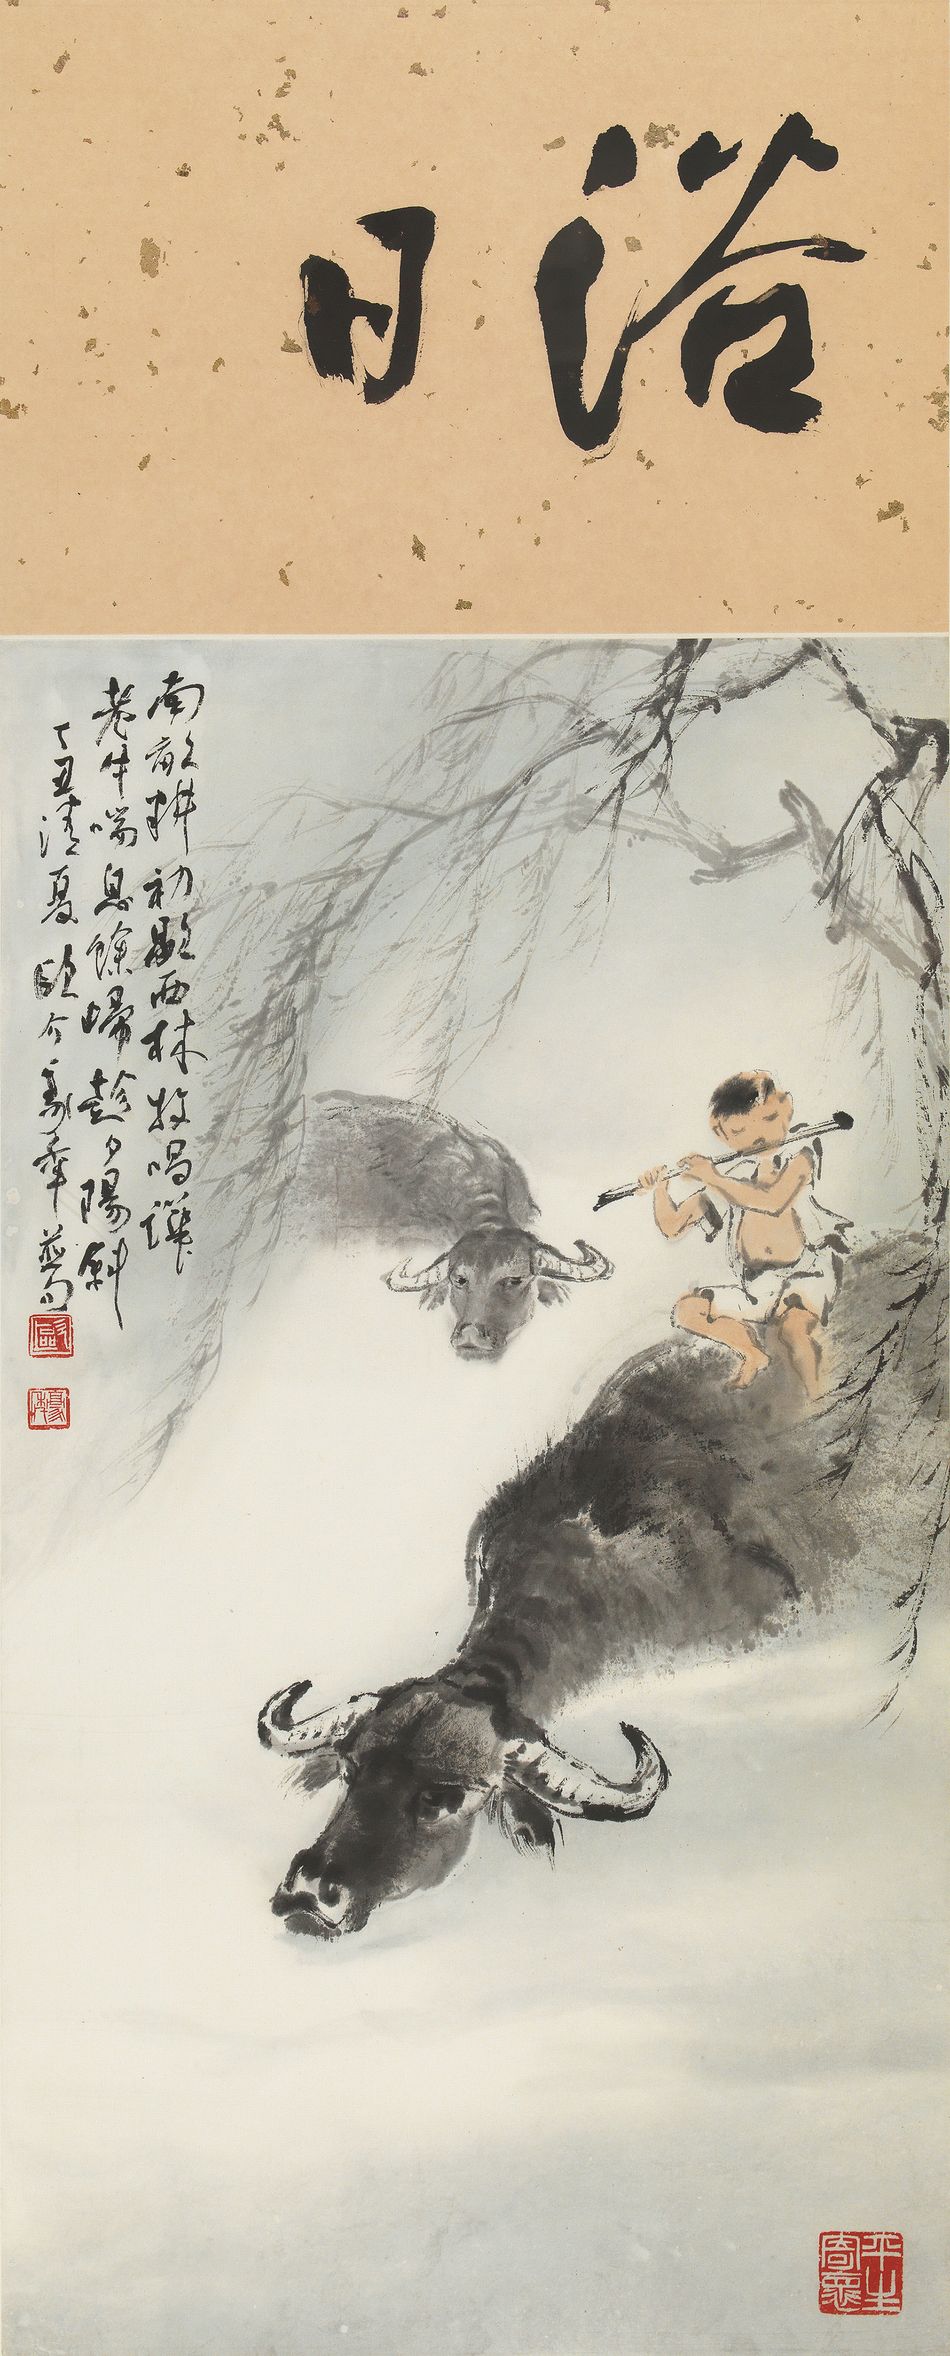 浴日
南畝耕初歇西林牧唱譁
老牛喘息餘歸趁夕陽斜
丁丑清夏歐介豪年並